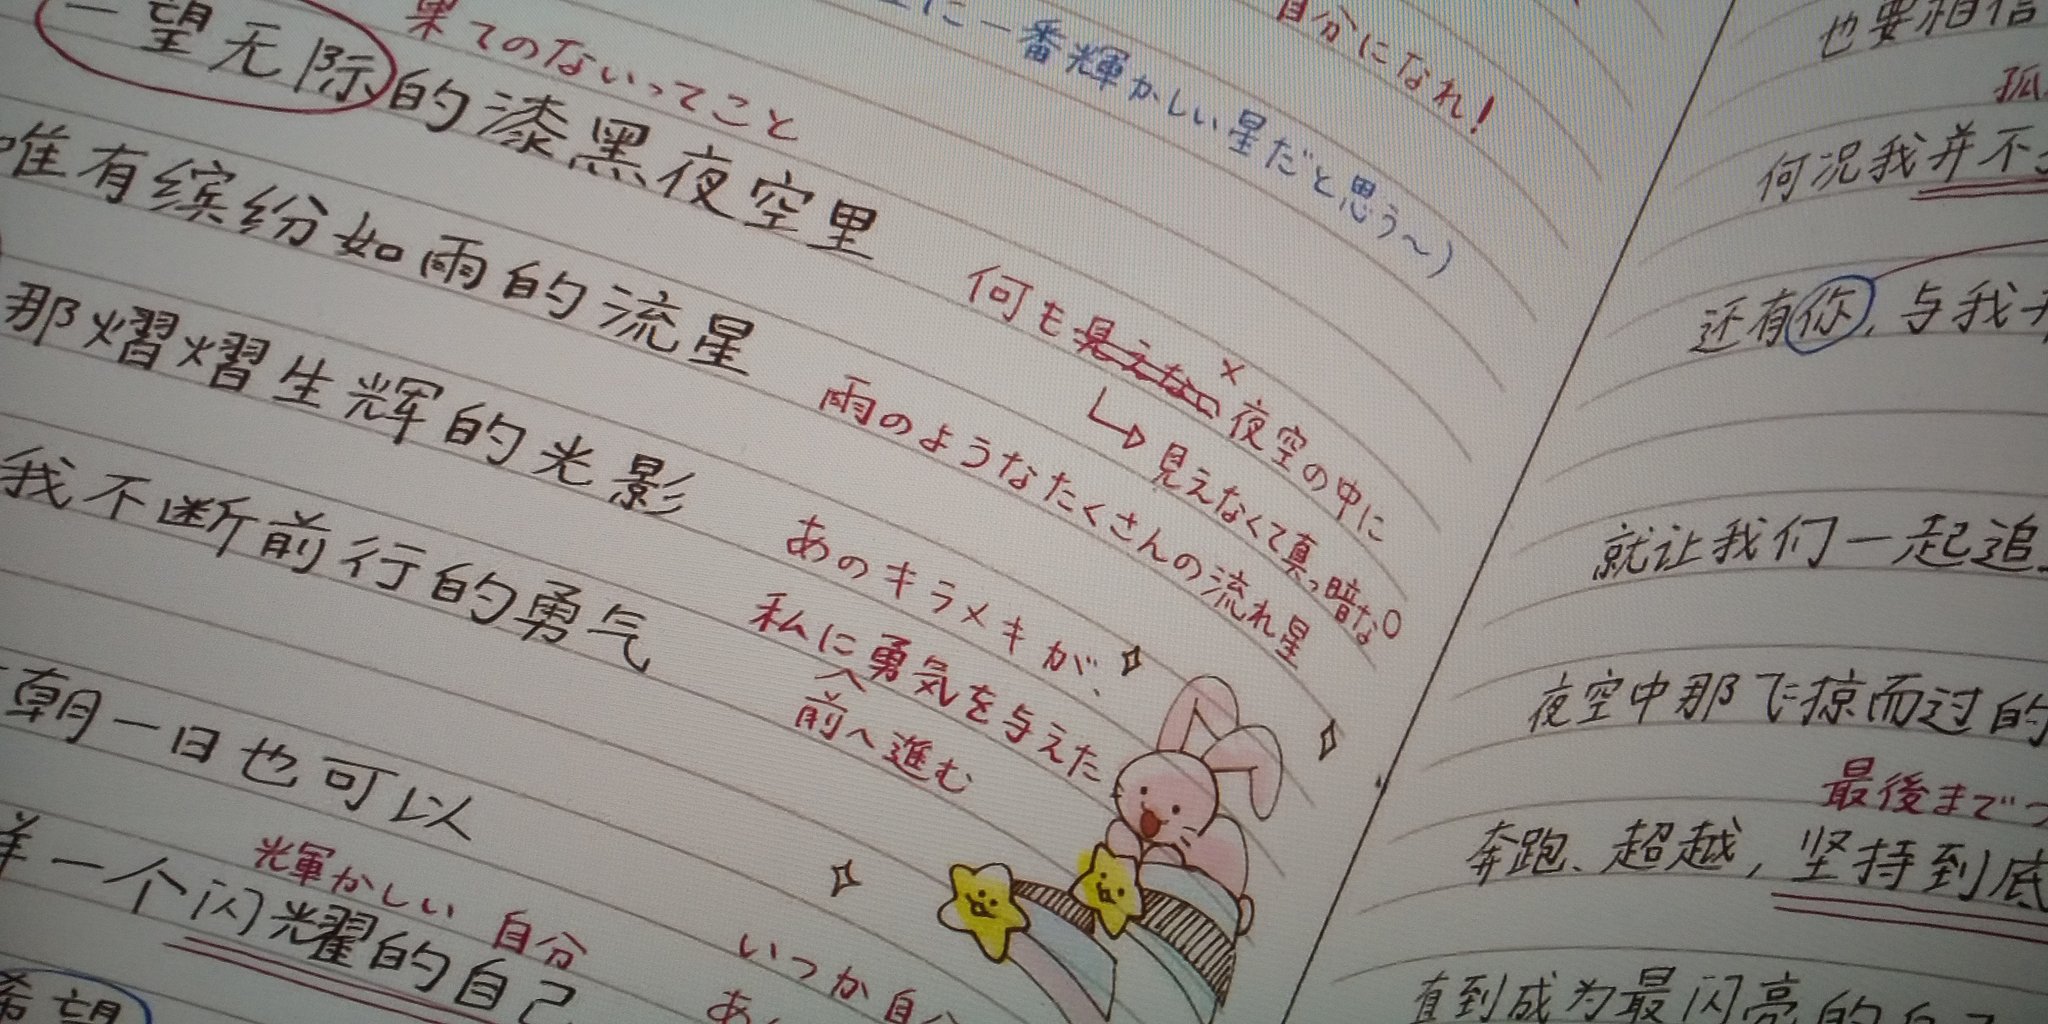 果てのないってこと
一望无际的漆黑夜空里
何も見えない夜空の中に
見えなくて真っ暗な
唯有缤纷如雨的流星
雨のようなたくさんの流れ星
那熠熠生辉的光影
あのキラメキが、
我不断前行的勇气
私に勇気を与えた
前へ進む
朝一日也可以
光輝かしい 自分
一个闪耀的自己
いつか自分
あ
希望
に一番輝かしい星だと思う〜)
自分になれ!
也要相信
孤
何况我并不
还有你,与我
就让我们一起追
夜空中那飞掠而过的
最後まで
奔跑、超越,坚持到底
直到成为最闪亮的自己